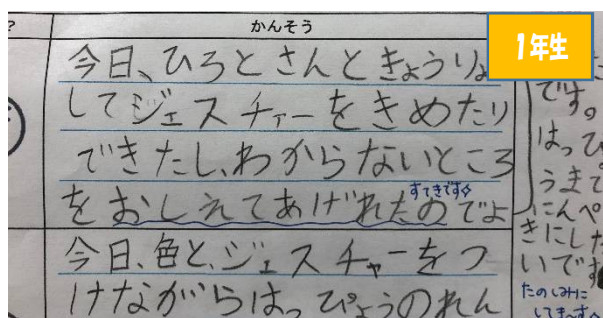 ?
かんそう
1年生
今日、ひろとさんときょうりょ
してジェスチャーをきめたり
できたし、わからないところ
をおしえてあげれたのでよ
すてきです
今日、色と、ジェスチャーをつ
けながらはっぴょうのれん
た
です。
はっぴ
うまで
にんぺ
きにした
いです
たのしみに
してま〜す